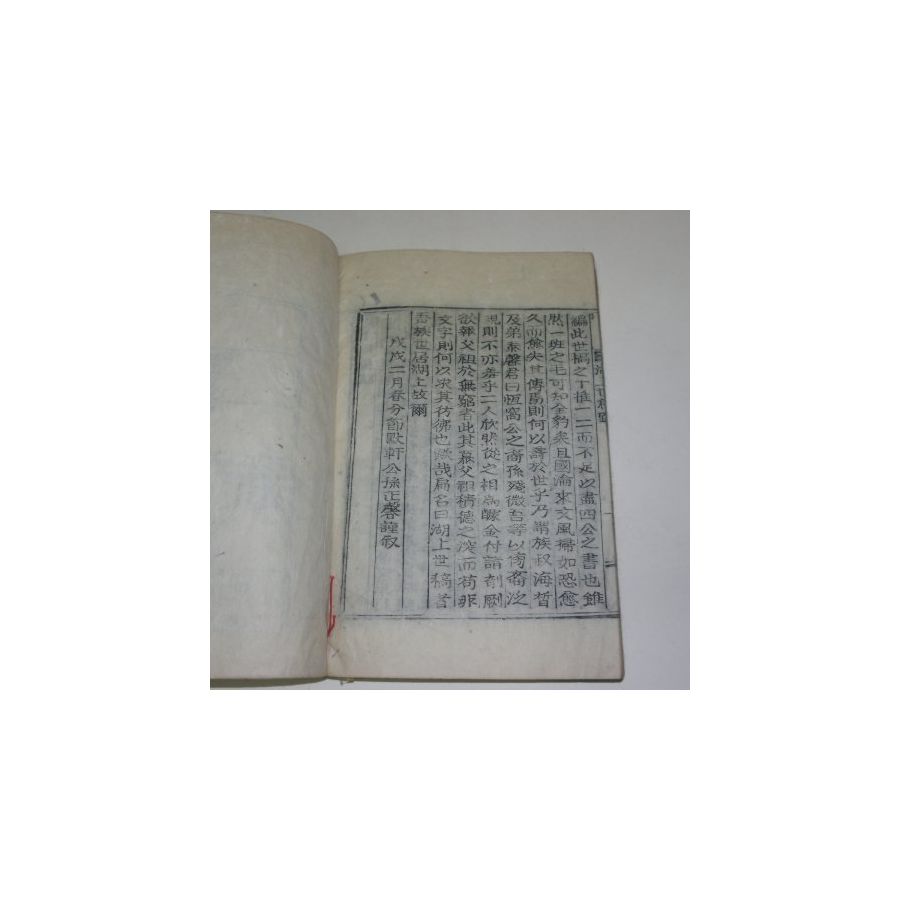 編此世稿之丁推一二而不足以盡四公之書也雖
然一班之毛可知全豹矣且國淪東文風掃如恐愈
久而愈失其傳焉則何以壽於世乎乃謂族叔海晳
及弟泰馨君曰恆窩公之裔孫殘微吾等以傍裔泛
視則不亦羞乎二人欣然從之相爲醵金付諸剞劂
欲報父祖於無窮者此其慕父祖積德之深而苟非
文字則何以求其彷彿也哉扁名曰湖上世稿者
吾族世居湖上故爾
戊戌二月春分節 軒公孫正馨謹叙